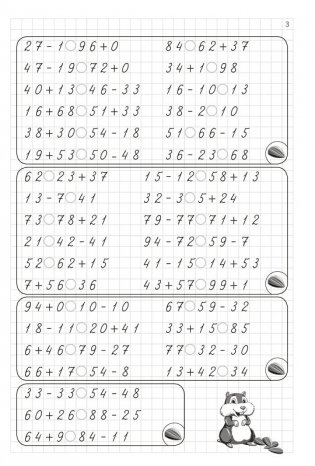 3
27-1○96+0 84○62+37
47-19○72+0 34+1○98
40+13○46-33 16-10○13
16+68○51+33 38-2○10
38+30○54-18 51○66-15
19+53○50-48 36-23○68
62○23+37 15-12○58+13
13-7○41 32-3○5+24
73○78+21 79-77○71+12
21○42-41 94-72○59-7
52○62+15 41-15○14+53
7+56○36 43+57○99+1
94+0○10-10 67○59-32
18-11○20+41 33+15○85
6+46○79-27 77○32-30
66+17○54-8 13+42○34
33-33○54-48
60+26○88-25
64+9○84-11